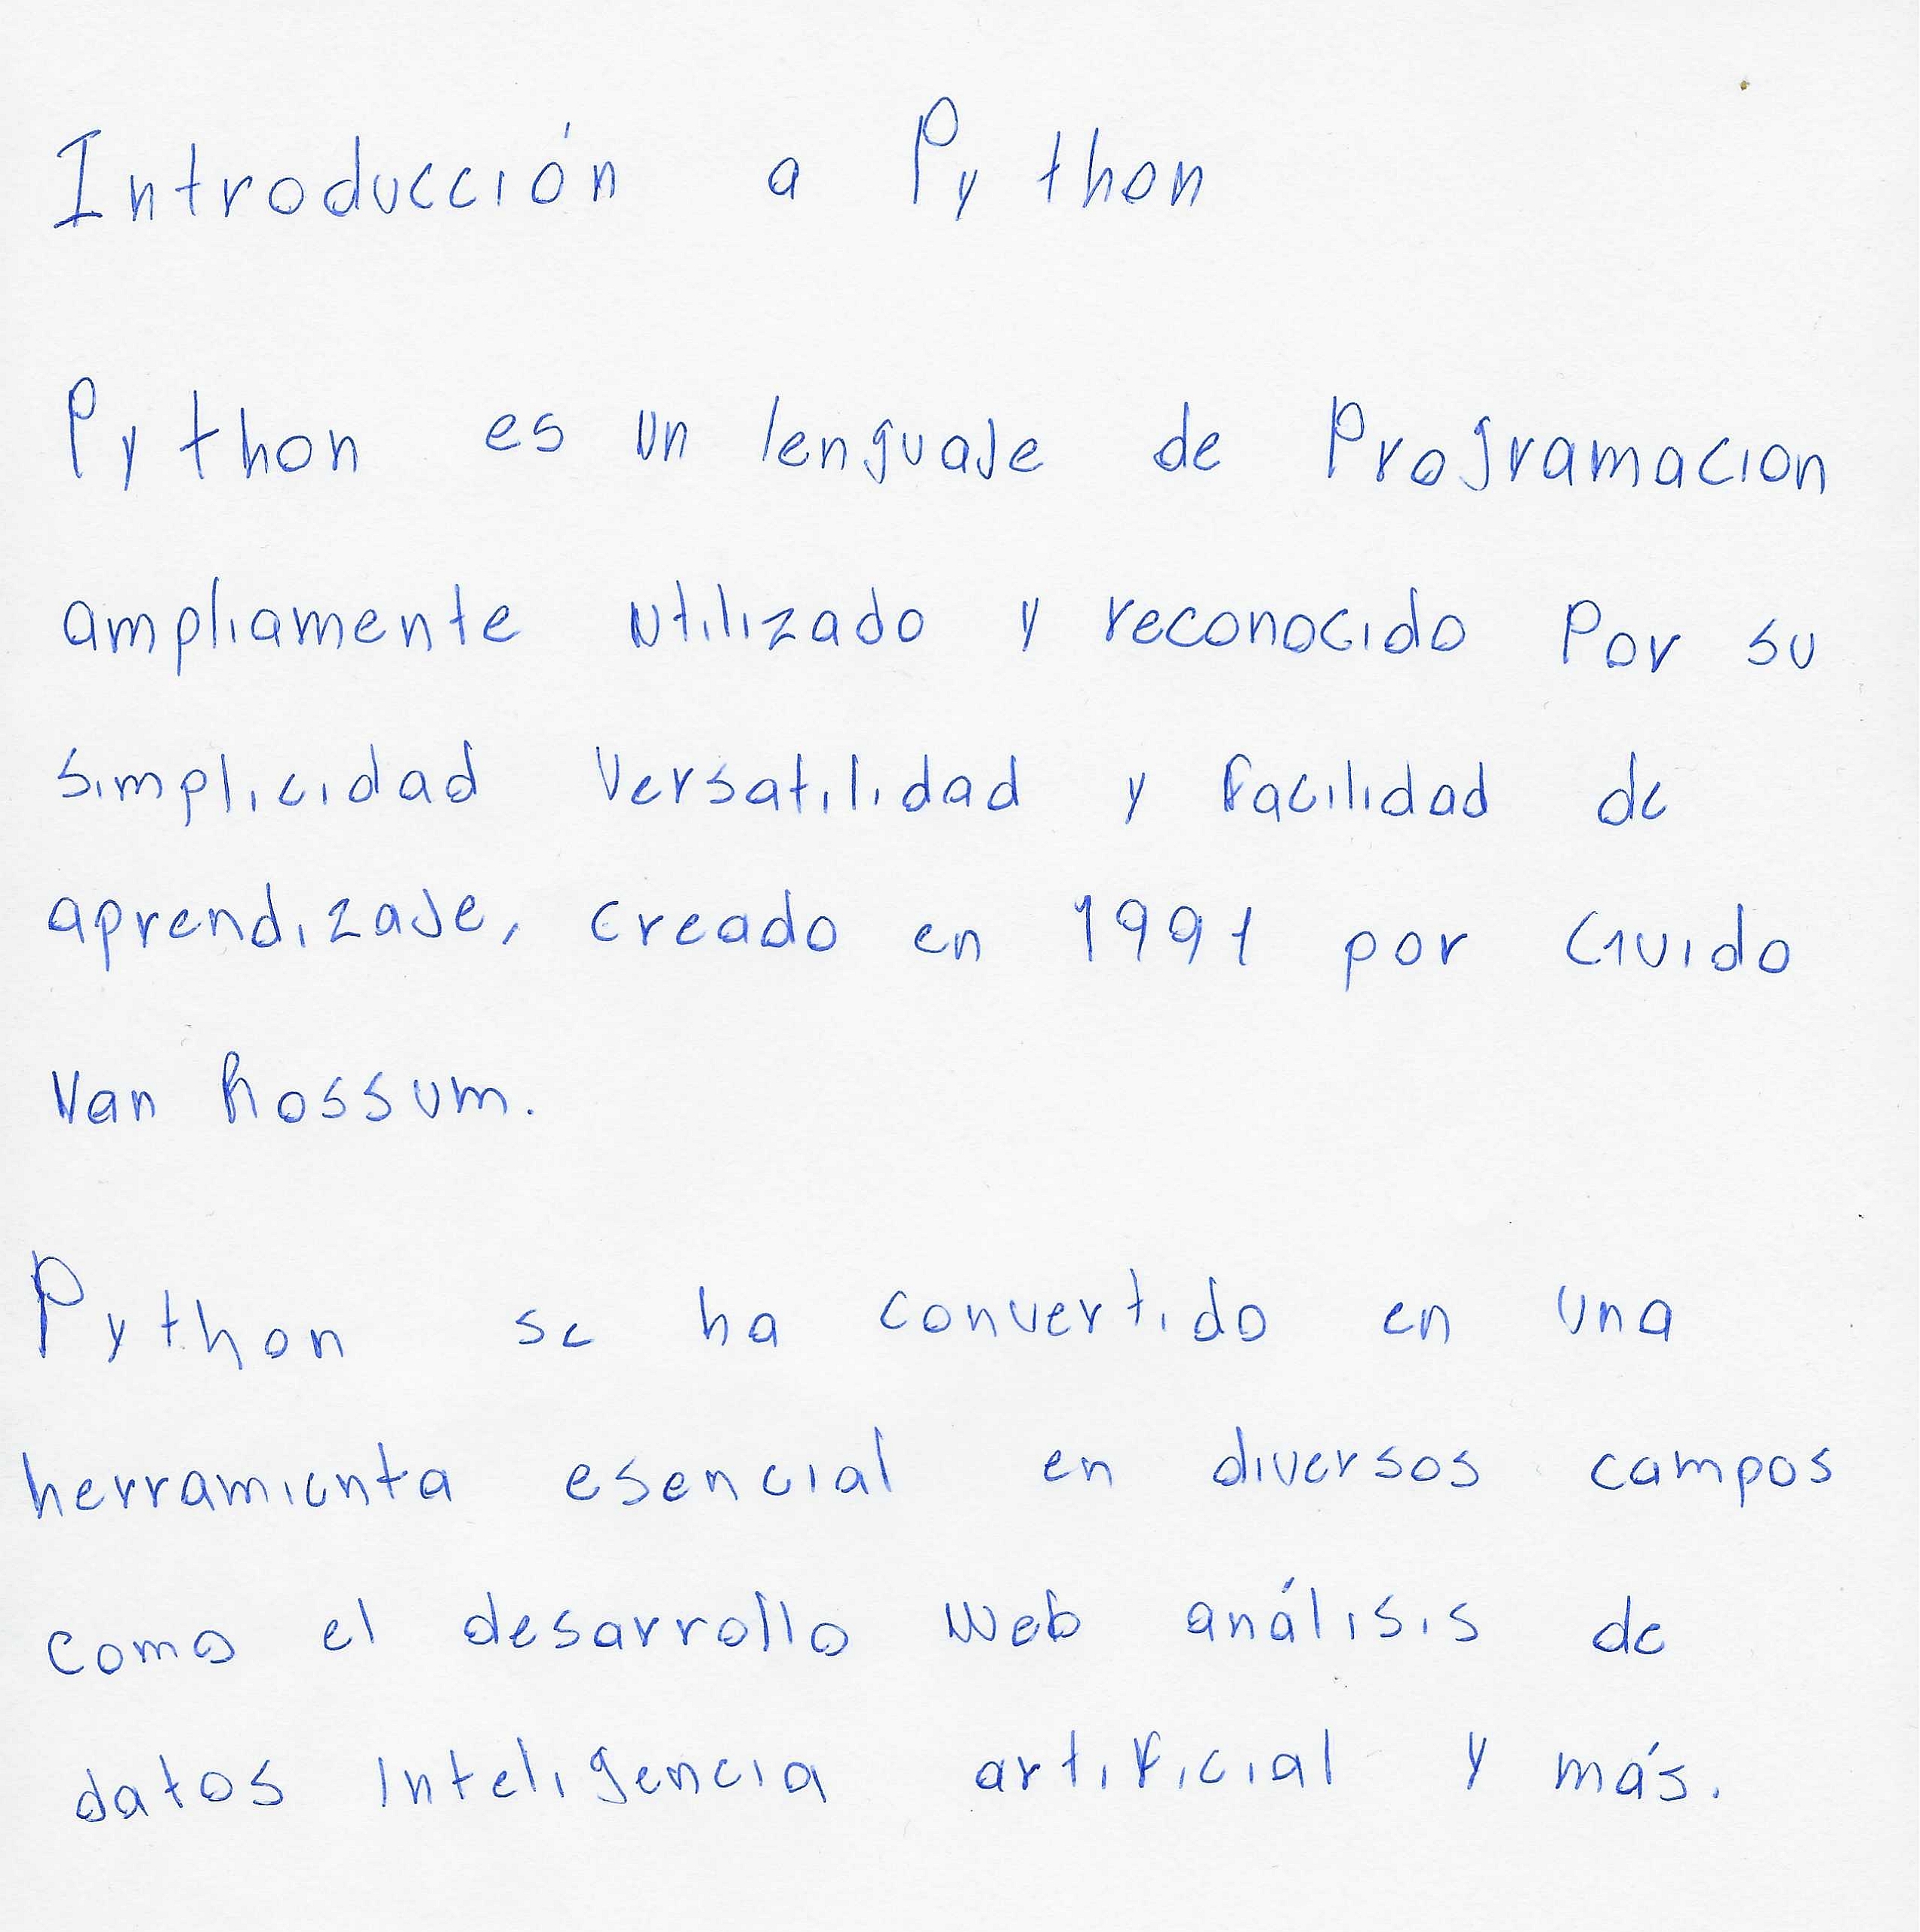 Introducción a Python
Python es un lenguaje de Programacion
ampliamente utilizado y reconocido Por su
simplicidad Versatilidad y Facilidad de
aprendizaje, creado en 1991 por Guido
Van Rossum.
Python se ha convertido en una
herramienta esencial en diversos campos
como el desarrollo Web análisis de
datos Inteligencia artificial y más.